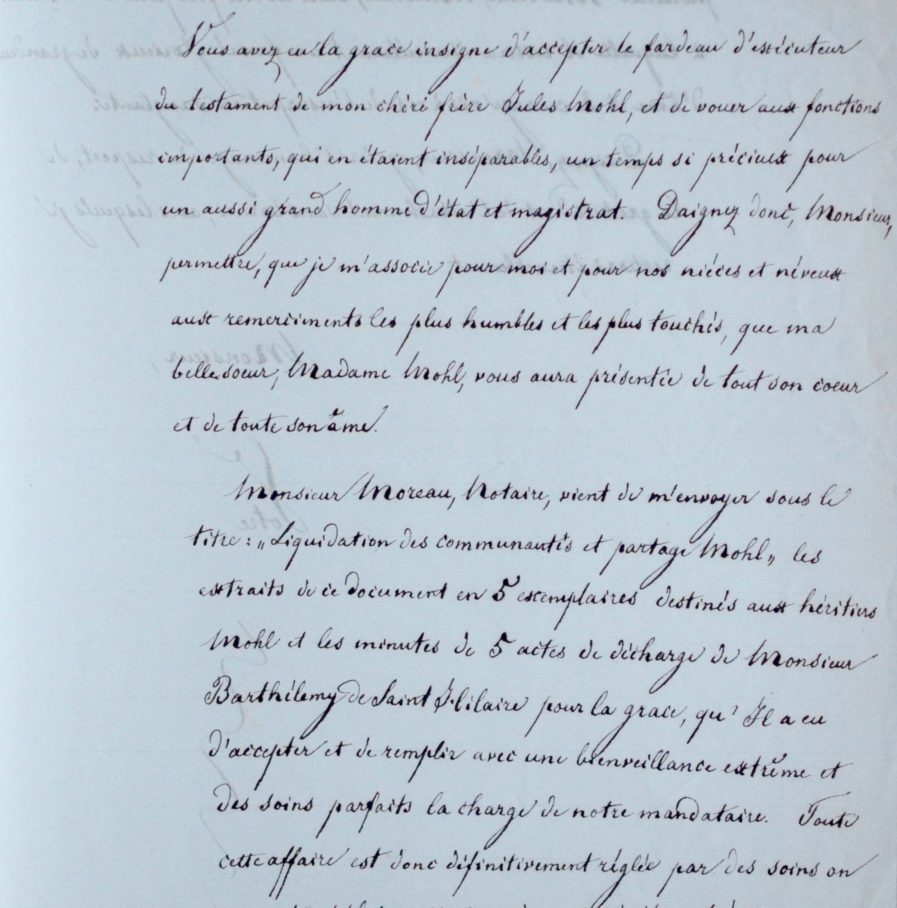 Vous avez eu la grace insigne d'accepter le fardeau d'exécuteur
du testament de mon chéri frère Jules Mohl, et de vouer aux fonctions
importants, qui en étaient inséparables, un temps si précieux pour
un aussi grand homme d'état et magistrat. Daignez donc, Monsieur,
permettre, que je m'associe pour moi et pour nos nièces et néveux
aux remerciments les plus humbles et les plus touchés, que ma
belle soeur, Madame Mohl, vous aura présentée de tout son coeur
et de toute son âme.
Monsieur Moreau, Notaire, vient de m'envoyer sous le
titre: „Liquidation des communautés et partage Mohl„ les
extraits de ce document en 5 exemplaires destinés aux héritiers
Mohl et les minutes de 5 actes de décharge de Monsieur
Barthélemy de Saint Hilaire pour la grace, qu' Il a eu
d'accepter et de remplir avec une bienveillance extrême et
des soins parfaits la charge de notre mandataire. Toute
cette affaire est donc définitivement réglée par des soins on